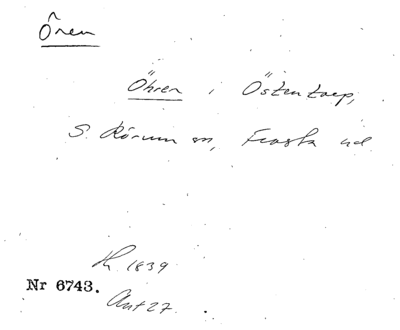 Ören
Öhren i Östentorp,
S. Rörum sn, Frosta hd
Nr 6743.
1839
Ant 27.